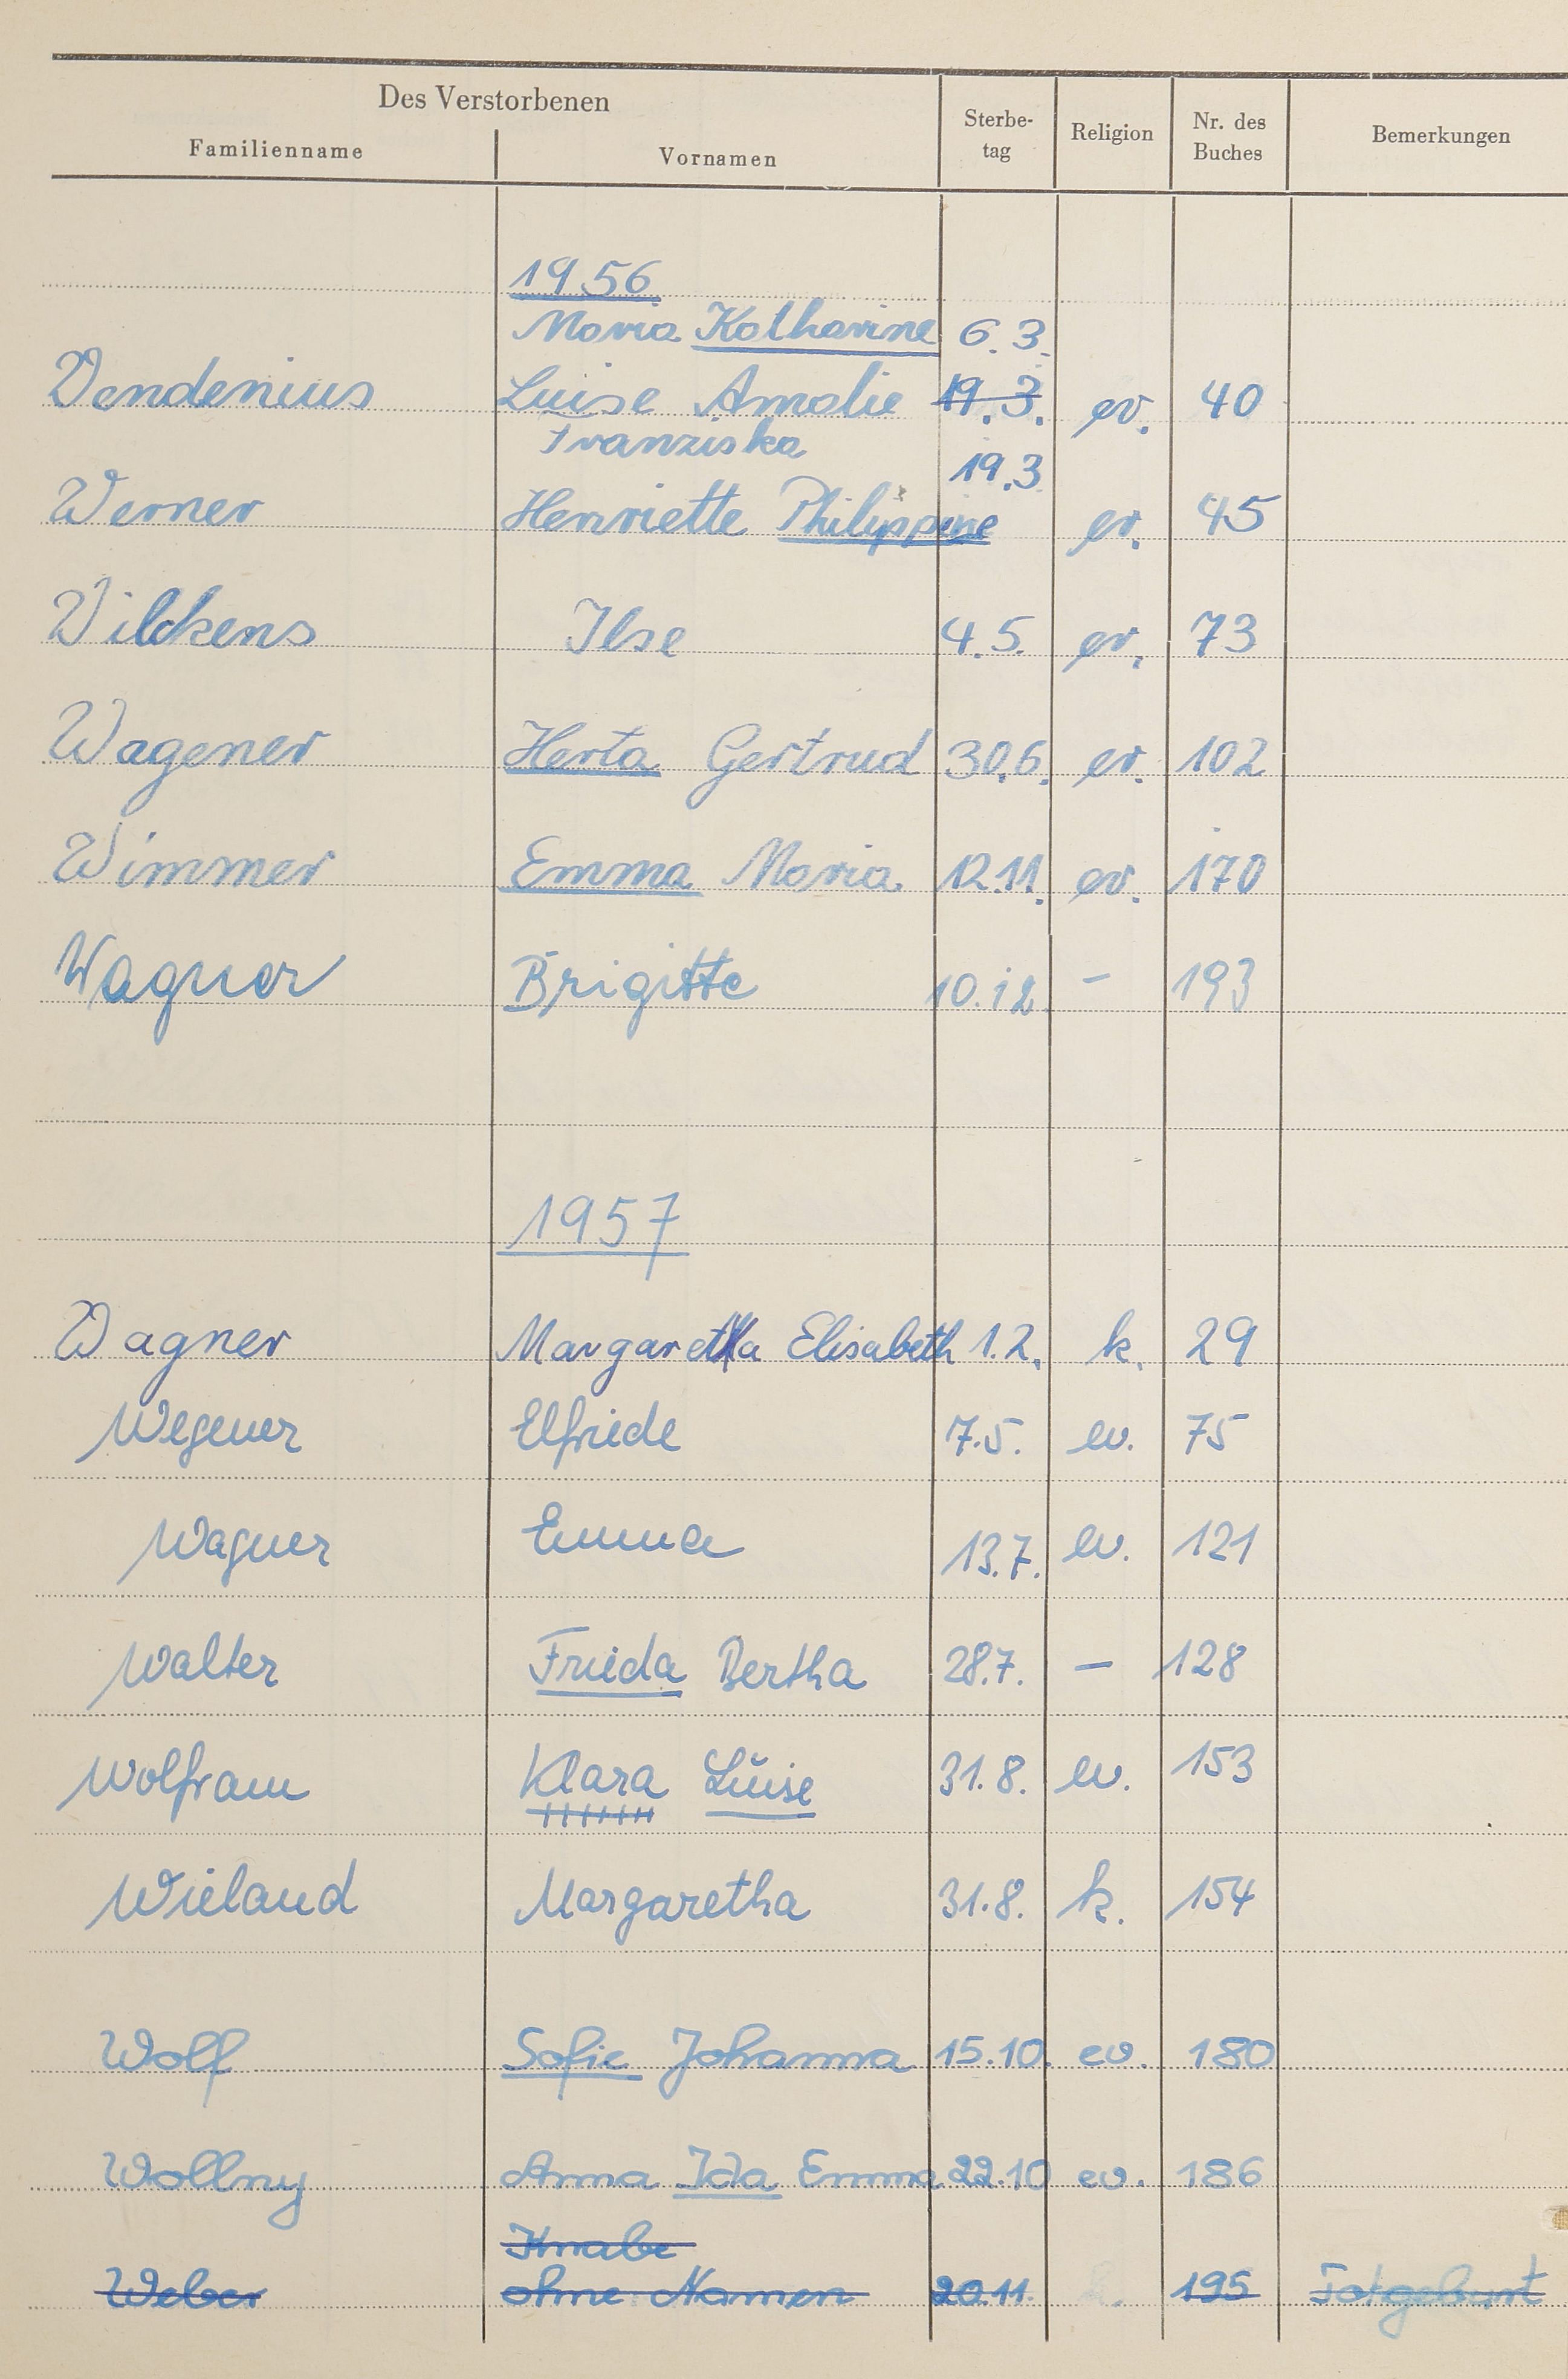 Des Verstorbenen
Familienname Vornamen Sterbe-tag Religion Nr. des Buches Bemerkungen
1956
Maria Katharine 6.3.
Wendenius Luise Amalie 19.3. ev. 40
Franziska 19.3
Werner Henriette Philippine ev. 45
Wilckens Ilse 4.5. ev. 73
Wagener Herta Gertrud 30.6. ev. 102
Wimmer Emma Maria 12.11. ev. 170
Wagner Brigitte 10.12. – 193
1957
Wagner Margaretha Elisabeth 1.2. k. 29
Wegener Elfriede 7.5. ev. 75
Wagner Emma 13.7. ev. 121
Walter Frieda Bertha 28.7. – 128
Wolfram Klara Luise 31.8. ev. 153
Wieland Margaretha 31.8. k. 154
Wolf Sofie Johanna 15.10. ev. 180
Wollny Anna Ida Emma 22.10 ev. 186
Knabe
Weber ohne Namen 20.11. 195 Totgeburt